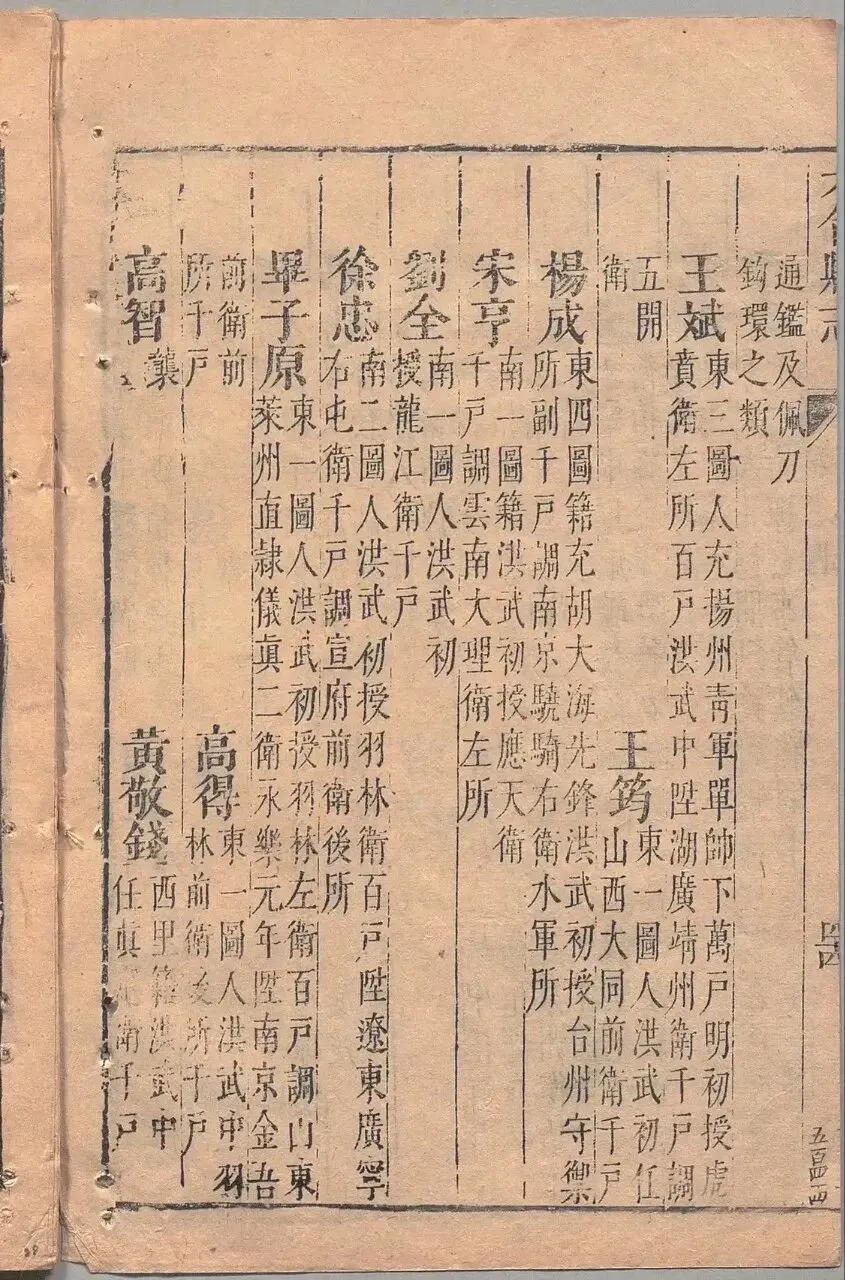 縣志
通鑑及佩刀
鈎環之類
王斌
東三圖人充揚州靑軍單帥下萬戶明初授虎
賁衛左所百戶洪武中陞湖廣靖州衛千戶調
五開
衛
王筠
東一圖人洪武初任
山西大同前衛千戶
楊成
東四圖籍充胡大海先鋒洪武初授台州守禦
所副千戶調南京驍騎右衛水軍所
宋亨
南一圖籍洪武初授應天衛
千戶調雲南大理衛左所
劉全
南一圖人洪武初
授龍江衛千戶
徐忠
南二圖人洪武初授羽林衛百戶陞遼東廣寧
右屯衛千戶調宣府前衛後所
畢子原
東一圖人洪武初授羽林左衛百戶調山東
萊州直隷儀眞二衛永樂元年陞南京金吾
前衛前
所千戶
高得
東一圖人洪武中羽
林前衛後所千戶
高智
襲
黃敬錢
西里籍洪武中
任眞衛千戶